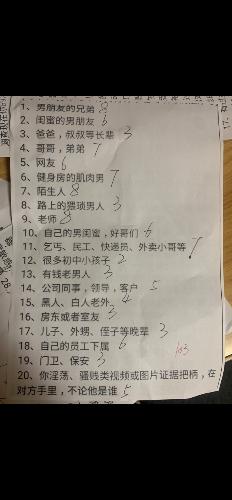 1、男朋友的兄弟 8
2、闺蜜的男朋友 6
3、爸爸，叔叔等长辈 3
4、哥哥，弟弟 7
5、网友 6
6、健身房的肌肉男 7
7、陌生人 8
8、路上的猥琐男人 3
9、老师 8
10、自己的男闺蜜，好哥们 6
11、乞丐、民工、快递员、外卖小哥等 7
12、很多初中小孩子 2
13、有钱老男人 3
14、公司同事，领导，客户 5
15、黑人、白人老外。 4
16、房东或者室友 3
17、儿子、外甥、侄子等晚辈 3
18、自己的员工下属 6
19、门卫、保安 3
103
20、你淫荡、骚贱类视频或图片证据把柄，在
对方手里，不论他是谁 5